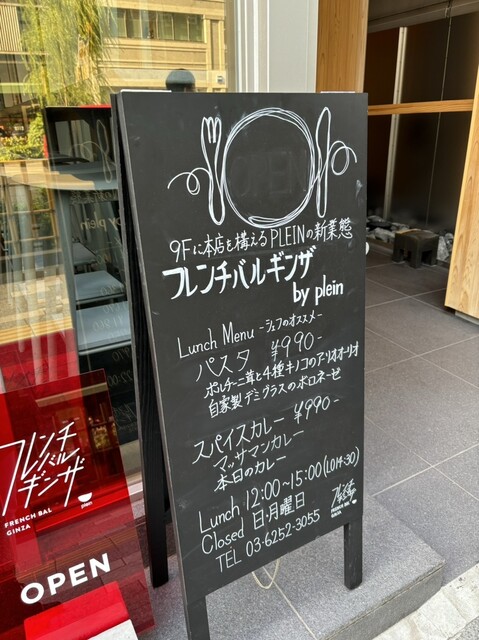 OPEN
9Fに本店を構えるPLEINの新業態
フレンチバルギンザ
by plein
Lunch Menu -シェフのオススメ-
パスタ ¥990-
ポルチーニ茸と4種キノコのアーリオオーリオ
自家製デミグラスのボロネーゼ
スパイスカレー ¥990-
マッサマンカレー
本日のカレー
Lunch 12:00~15:00(LO14:30)
Closed 日・月曜日
TEL 03-6252-3055
フレンチ
バル
ギンザ
FRENCH BAL
GINZA
plein
フレンチ
バル
ギンザ
FRENCH BAL
GINZA
OPEN